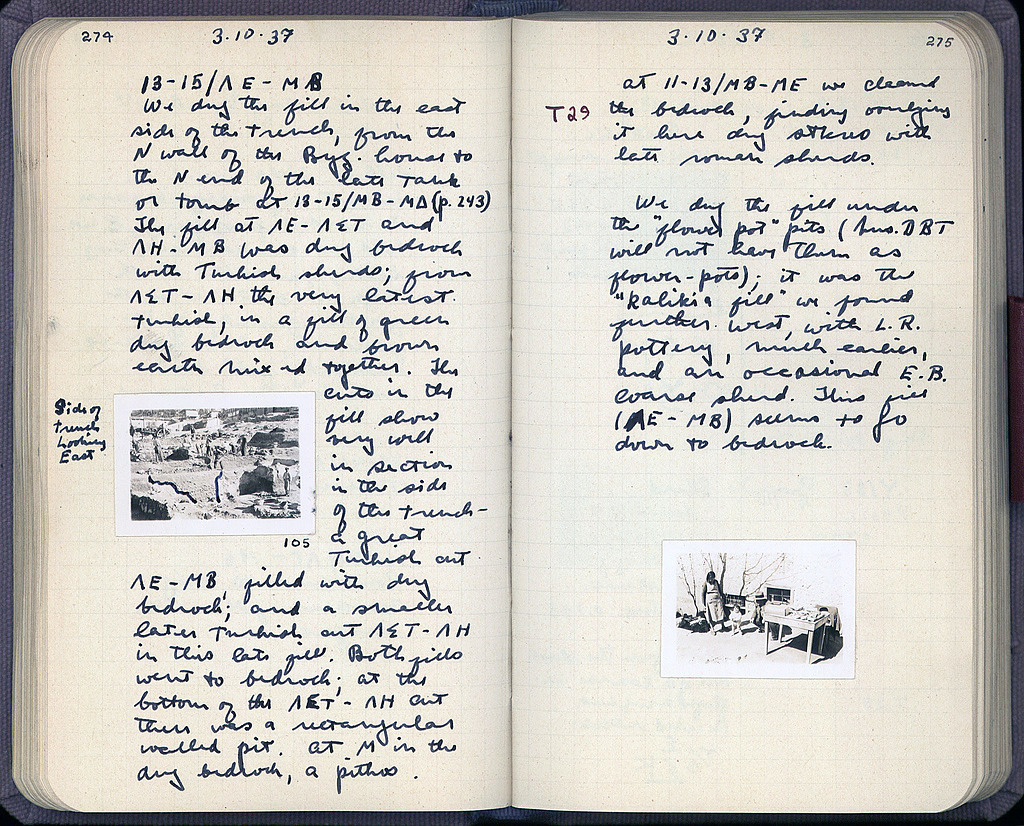 274
3·10·37
13-15/ΛE-MB
We dug the fill in the east
side of the trench, from the
N wall of the Byz. house to
the N end of the late Tank
or tomb at 13-15/MB-MΔ (p. 243)
The fill at ΛE-ΛΣT and
ΛH-MB was dug bedrock
with Turkish sherds; from
ΛΣT-ΛH the very latest
Turkish, in a fill of green
dug bedrock and brown
earth mixed together. The
cuts in the
fill show
very well
in section
in the side
of the trench -
a great
Turkish cut
Side of
trench
Looking
East
105
ΛE-MB, filled with dug
bedrock; and a smaller
later Turkish cut ΛΣT-ΛH
in this late fill. Both fills
went to bedrock; at the
bottom of the ΛΣT-ΛH cut
there was a rectangular
walled pit. At M in the
dug bedrock, a pithos.
3·10·37
275
at 11-13/MB-ME we cleared
T29
the bedrock, finding overlying
it here dug stereo with
late roman sherds.
We dug the fill under
the "flower pot" pits (Aus. DBT
will not have them as
flower-pots); it was the
"kalikia fill" we found
further west, with L.R.
pottery, much earlier,
and an occasional E.B.
coarse sherd. This fill
(ΛE-MB) seems to go
down to bedrock.